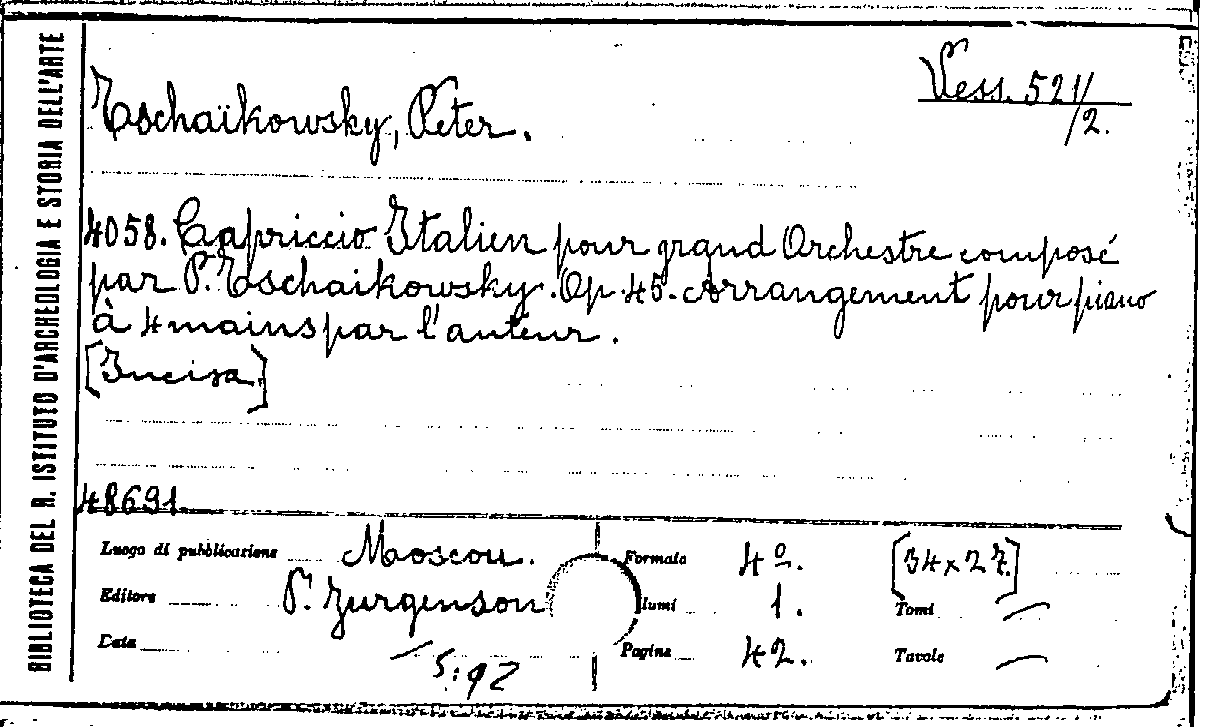 BIBLIOTECA DEL R. ISTITUTO D'ARCHEOLOGIA E STORIA DELL'ARTE
Vess. 521/
/2.
Tschaïkowsky, Peter.
4058. Capriccio Italien pour grand Orchestre composé
par P. Tschaikowsky. Op. 45. Arrangement pour piano
à 4 mains par l'auteur.
[Incisa.]
48691
Luogo di pubblicazione Moscou. Formato 4º. [34×27.]
Editore P. Jurgenson lumi 1. Tomi —
Data — Pagine 42. Tavole —